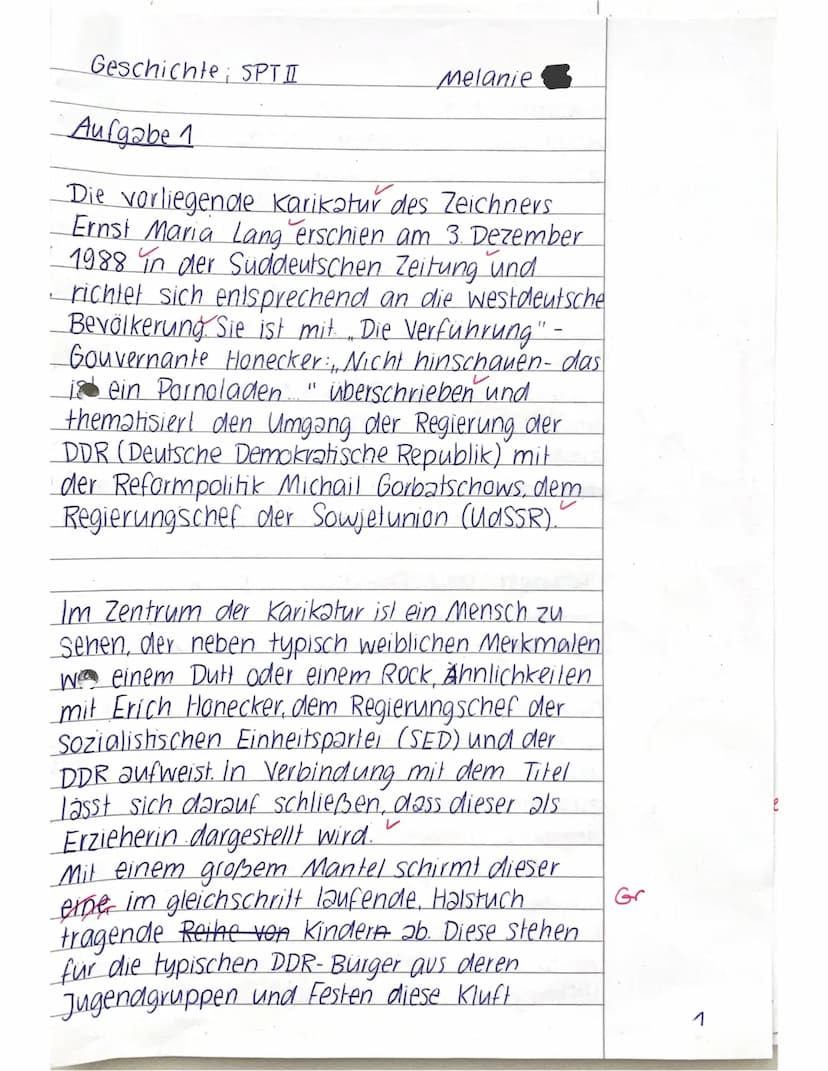 Geschichte; SPT II Melanie
Aufgabe 1
Die vorliegende Karikatur des Zeichners
Ernst Maria Lang erschien am 3. Dezember
1988 in der Süddeutschen Zeitung und
richtet sich entsprechend an die westdeutsche
Bevölkerung. Sie ist mit „Die Verführung" -
Gouvernante Honecker: „Nicht hinschauen - das
ein Pornoladen..." überschrieben und
thematisiert den Umgang der Regierung der
DDR (Deutsche Demokratische Republik) mit
der Reformpolitik Michail Gorbatschows, dem
Regierungschef der Sowjetunion (UdSSR).
Im Zentrum der Karikatur ist ein Mensch zu
sehen, der neben typisch weiblichen Merkmalen
einem Dutt oder einem Rock, Ähnlichkeiten
mit Erich Honecker, dem Regierungschef der
Sozialistischen Einheitspartei (SED) und der
DDR aufweist. In Verbindung mit dem Titel
lässt sich darauf schließen, dass dieser als
Erzieherin dargestellt wird.
Mit einem großem Mantel schirmt dieser
eine im gleichschritt laufende, Halstuch Gr
tragende Reihe von Kindern ab. Diese stehen
für die typischen DDR-Bürger aus deren
Jugendgruppen und Festen diese Kluft
1